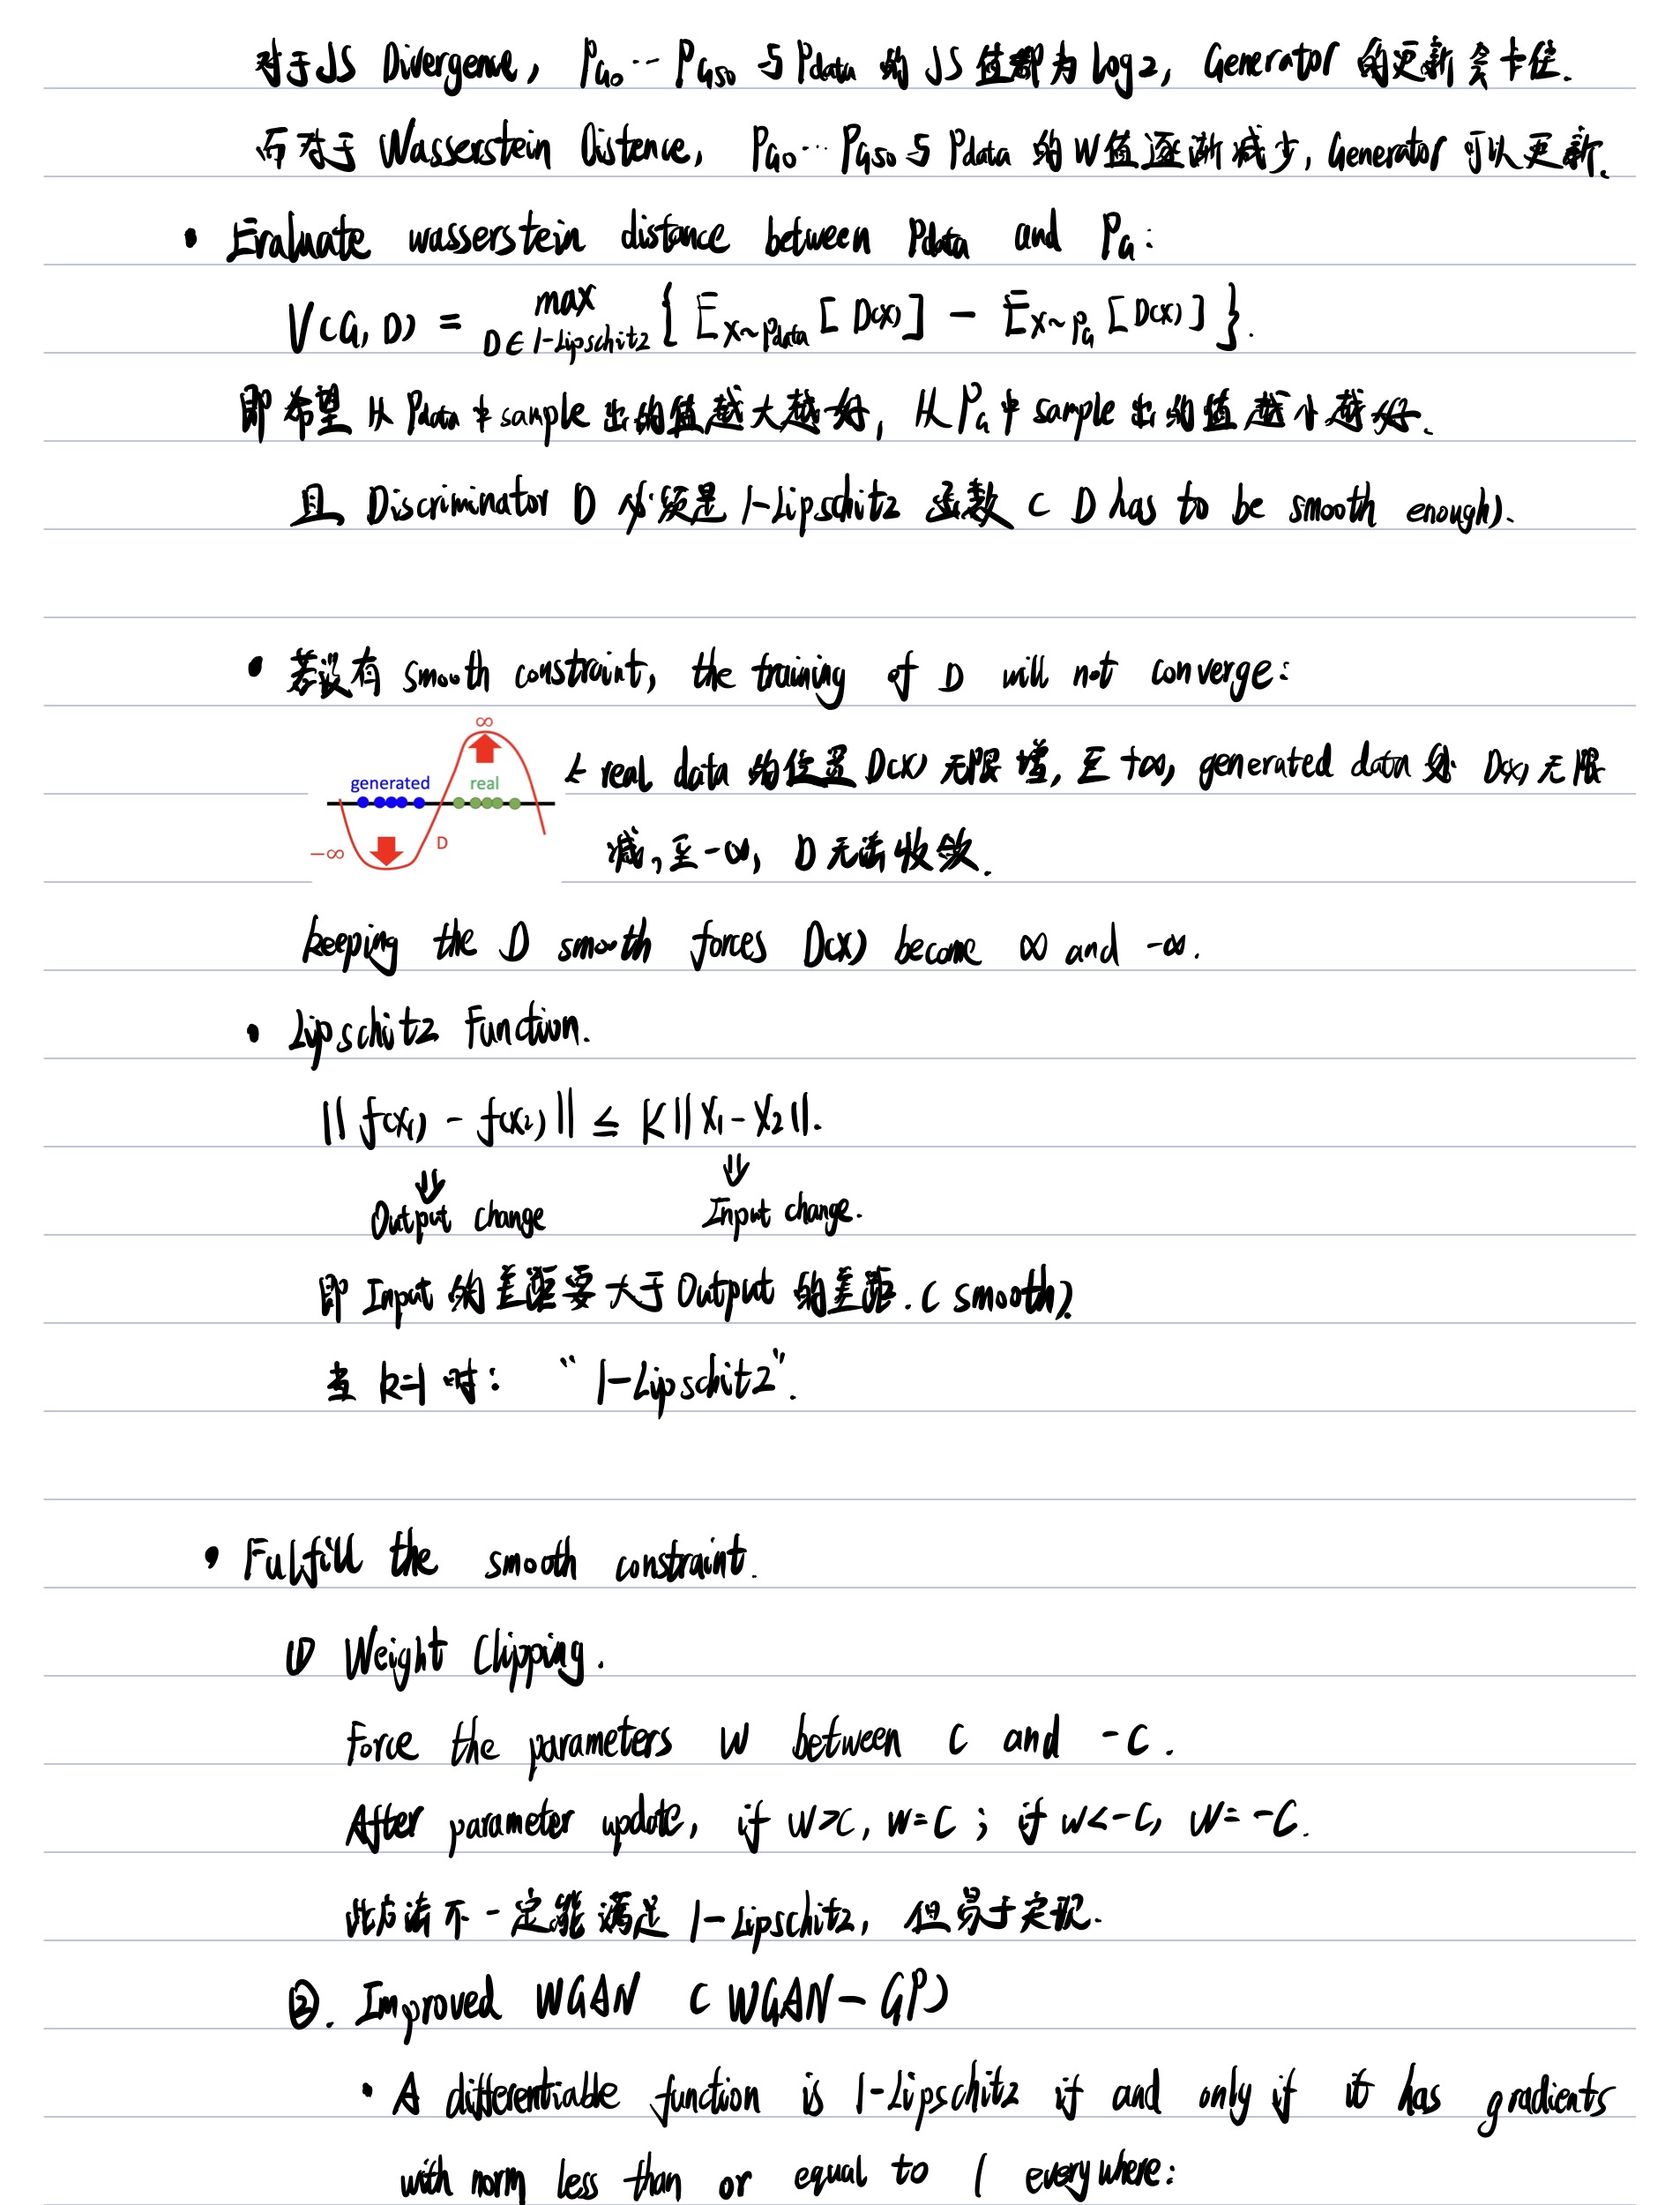 对于JS Divergence, PG0 ... PG50 与 Pdata 的 JS 值都为 log2, Generator 的更新会卡住.
而对于 Wasserstein Distence, PG0 ... PG50 与 Pdata 的 W值逐渐减少, Generator 可以更新.
• Evaluate wasserstein distance between Pdata and PG:
V(G, D) = max D∈1-Lipschitz { E x~Pdata [D(x)] - E x~PG [D(x)] }.
即希望从 Pdata 中 sample 出的值越大越好, 从 PG 中 sample 出的值越小越好.
且 Discriminator D 必须是 1-Lipschitz 函数 ( D has to be smooth enough).
• 若没有 smooth constraint, the training of D will not converge:
∞
generated real
-∞ D
← real data 的位置 D(x) 无限增, 至 +∞, generated data 处 D(x) 无限
减, 至 -∞, D 无法收敛.
keeping the D smooth forces D(x) become ∞ and -∞.
• Lipschitz Function.
|| f(x1) - f(x2) || ≤ K || x1 - x2 ||.
⇓ ⇓
Output change Input change.
即 Input 的差距要大于 Output 的差距. ( smooth).
当 k=1 时: "1-Lipschitz".
• Fulfill the smooth constraint.
① Weight Clipping.
Force the parameters w between c and -c.
After parameter update, if w>c, w=c ; if w<-c, w=-c.
此方法不一定能满足 1-Lipschitz, 但易于实现.
②. Improved WGAN ( WGAN-GP)
• A differentiable function is 1-Lipschitz if and only if it has gradients
with norm less than or equal to 1 everywhere: